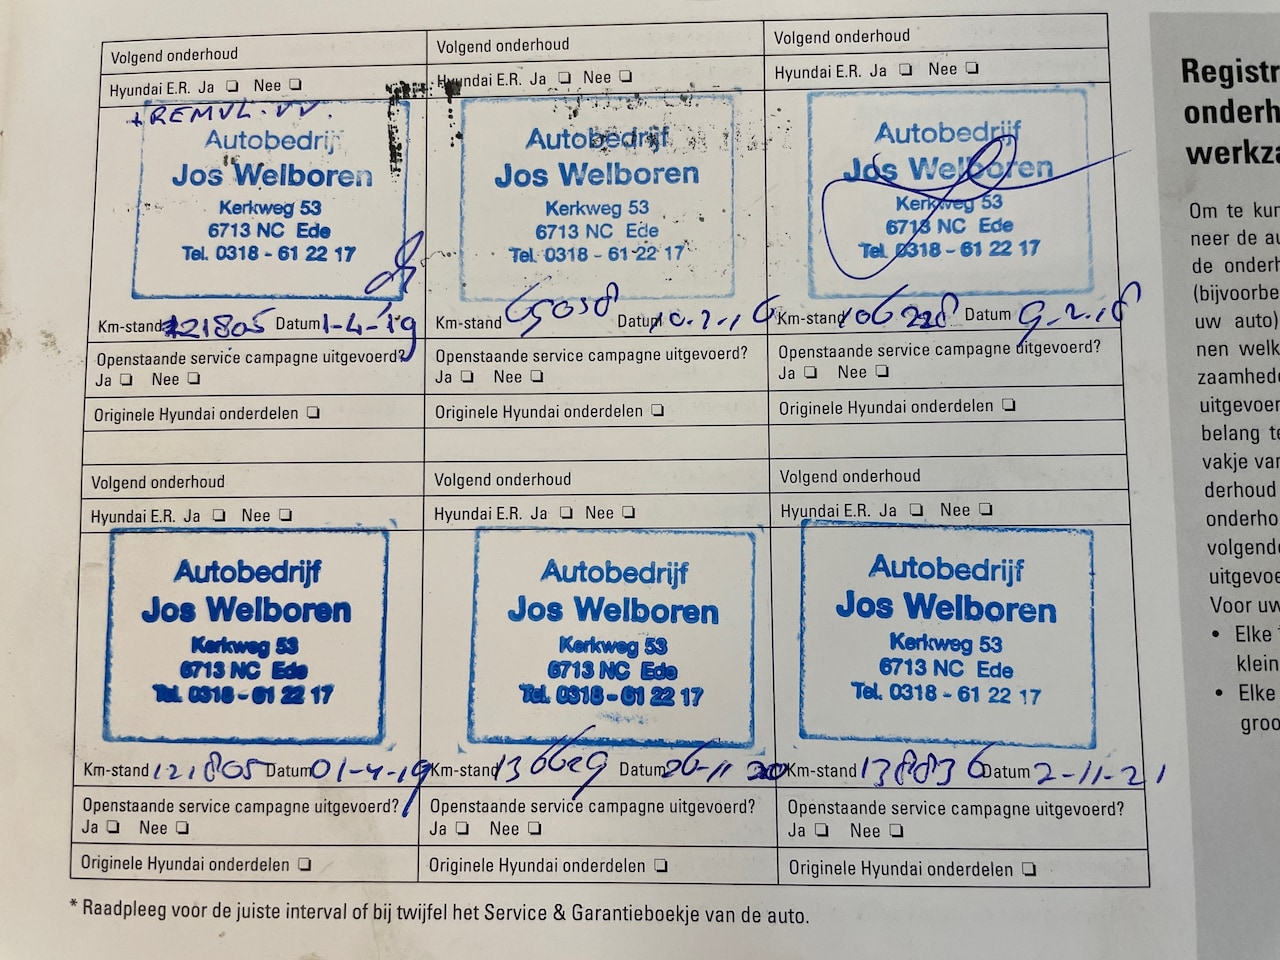 Volgend onderhoud
Hyundai E.R. Ja ❏ Nee ❏
+REMVL. VV.
Autobedrij
Jos Welboren
Kerkweg 53
6713 NC Ede
Tel. 0318 - 61 22 17
Km-stand 121805 Datum 1-4-'19
Openstaande service campagne uitgevoerd?
Ja ❏ Nee ❏
Originele Hyundai onderdelen ❏
Volgend onderhoud
Hyundai E.R. Ja ❏ Nee ❏
Autobedrijf
Jos Welboren
Kerkweg 53
6713 NC Ede
Tel. 0318 - 61 22 17
Km-stand Datum
Openstaande service campagne uitgevoerd?
Ja ❏ Nee ❏
Originele Hyundai onderdelen ❏
Volgend onderhoud
Hyundai E.R. Ja ❏ Nee ❏
Autobedrijf
Jos Welboren
Kerkweg 53
6713 NC Ede
Tel. 0318 - 61 22 17
Km-stand 106228 Datum 9-2-18
Openstaande service campagne uitgevoerd?
Ja ❏ Nee ❏
Originele Hyundai onderdelen ❏
Volgend onderhoud
Hyundai E.R. Ja ❏ Nee ❏
Autobedrijf
Jos Welboren
Kerkweg 53
6713 NC Ede
Tel. 0318 - 61 22 17
Km-stand 121805 Datum 01-4-19
Openstaande service campagne uitgevoerd?
Ja ❏ Nee ❏
Originele Hyundai onderdelen ❏
Volgend onderhoud
Hyundai E.R. Ja ❏ Nee ❏
Autobedrijf
Jos Welboren
Kerkweg 53
6713 NC Ede
Tel. 0318 - 61 22 17
Km-stand 136629 Datum 26-11 20
Openstaande service campagne uitgevoerd?
Ja ❏ Nee ❏
Originele Hyundai onderdelen ❏
Volgend onderhoud
Hyundai E.R. Ja ❏ Nee ❏
Autobedrijf
Jos Welboren
Kerkweg 53
6713 NC Ede
Tel. 0318 - 61 22 17
Km-stand 138836 Datum 2-11-21
Openstaande service campagne uitgevoerd?
Ja ❏ Nee ❏
Originele Hyundai onderdelen ❏
* Raadpleeg voor de juiste interval of bij twijfel het Service & Garantieboekje van de auto.
Registr
onderh
werkza
Om te kun
neer de au
de onderh
(bijvoorbe
uw auto)
nen welk
zaamhede
uitgevoer
belang te
vakje van
derhoud
onderho
volgende
uitgevoe
Voor uw
• Elke
klein
• Elke
groo